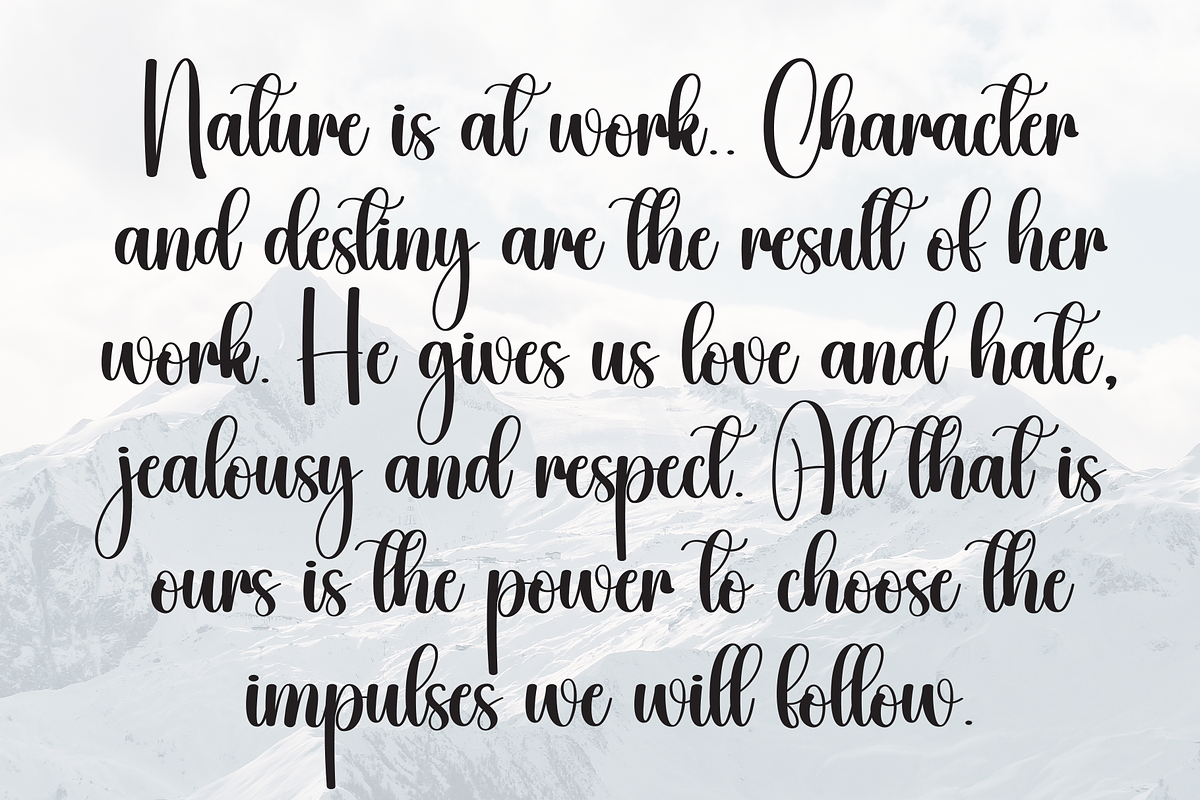 Nature is at work.. Character
and destiny are the result of her
work. He gives us love and hate,
jealousy and respect. All that is
ours is the power to choose the
impulses we will follow.